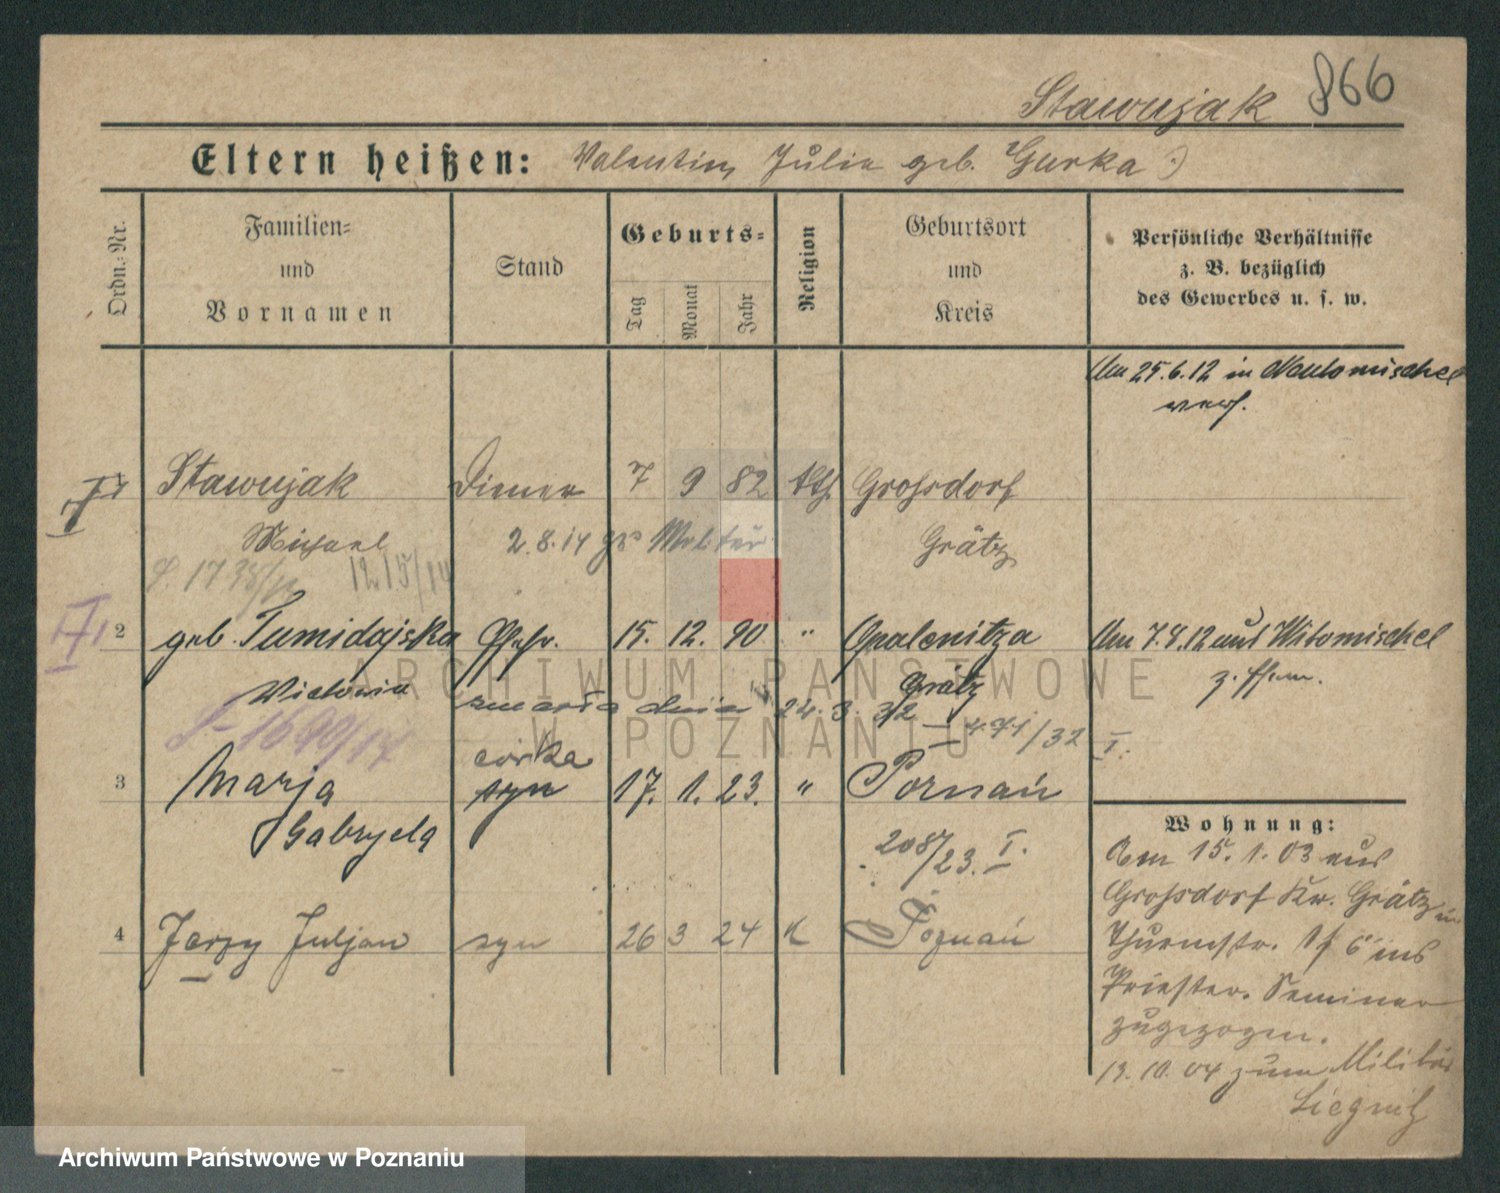 Stawujak 866
Eltern heißen: Valentin, Julie geb. Gurka
Ordn.-Nr.
Familien-
und
Vornamen
Stand
Geburts-
Tag
Monat
Jahr
Religion
Geburtsort
und
Kreis
Persönliche Verhältnisse
z. B. bezüglich
des Gewerbes u. s. w.
25.6.12 in Neutomischel
verh.
1 Stawujak Diener 7 9 82 kth Großdorf
Michael 2.8.14 Militär Grätz
1215/14
2 geb. Tumidajska Ehefr. 15. 12. 90 " Opalenitza
7.8.12 aus Witomischel
z. Ehem.
Victoria Grätz
zmarła dnia 24. 3. 32 I 471/32 I.
S-1699/17
córka
3 Marja syn 17. 1. 23. " Poznań
Gabryela 208/23. I.
4 Jerzy Juljan syn 26 3 24 k Poznań
Wohnung:
Am 15.1.03 aus
Großdorf Kr. Grätz in
Thurmstr. 6 ins
Priester. Seminar
zugezogen.
13.10.04 zum Militär
Liegnitz
ARCHIWUM PAŃSTWOWE
W POZNANIU
Archiwum Państwowe w Poznaniu